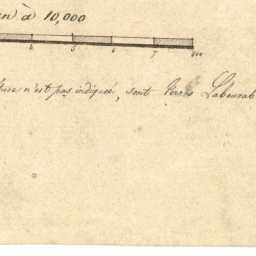 n à 10,000
4 5 6 7 m
n'est pas indiqué, sont Terres Labourab